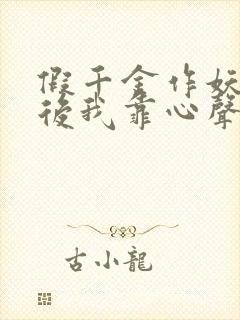 假千金作妖
後我靠心聲
古小龍